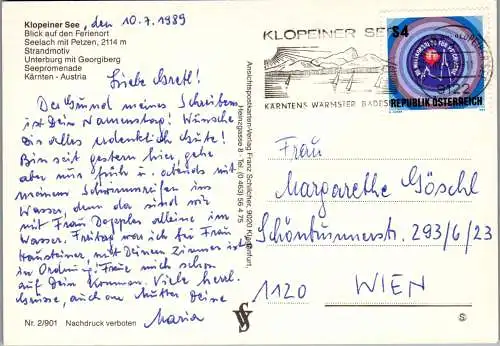 Klopeiner See, den 10.7.1989
Blick auf den Ferienort
Seelach mit Petzen, 2114 m
Strandmotiv
Unterburg mit Georgiberg
Seepromenade
Kärnten - Austria
Liebe Gretl!
Der Grund meines Schreibens
ist Dein Namenstag! Wünsche
Dir alles erdenklich Gute!
Bin seit gestern hier, gehe
aber nur früh u. abends mit
meinem Schwimmreifen ins
Wasser, denn da sind wir
mit Frau alleine im
Wasser. Freitag war ich bei Frau
Hausteiner, mit Deinem Zimmer ist
in Ordnung. Freue mich schon
auf Dein Kommen. Viele herzl.
Grüsse, auch an Mutter Deine
Maria
Nr. 2/901 Nachdruck verboten
Ansichtspostkarten-Verlag Franz Schilcher, 9020 Klagenfurt,
Henzgasse 8 - Tel. (0 463) 56 4 75
KLOPEINER SEE
KÄRNTENS WÄRMSTER BADESEE
9122
S4
REPUBLIK ÖSTERREICH
Frau
Margarethe Göschl
Schöntunnerstr. 293/6/23
1120 WIEN
S